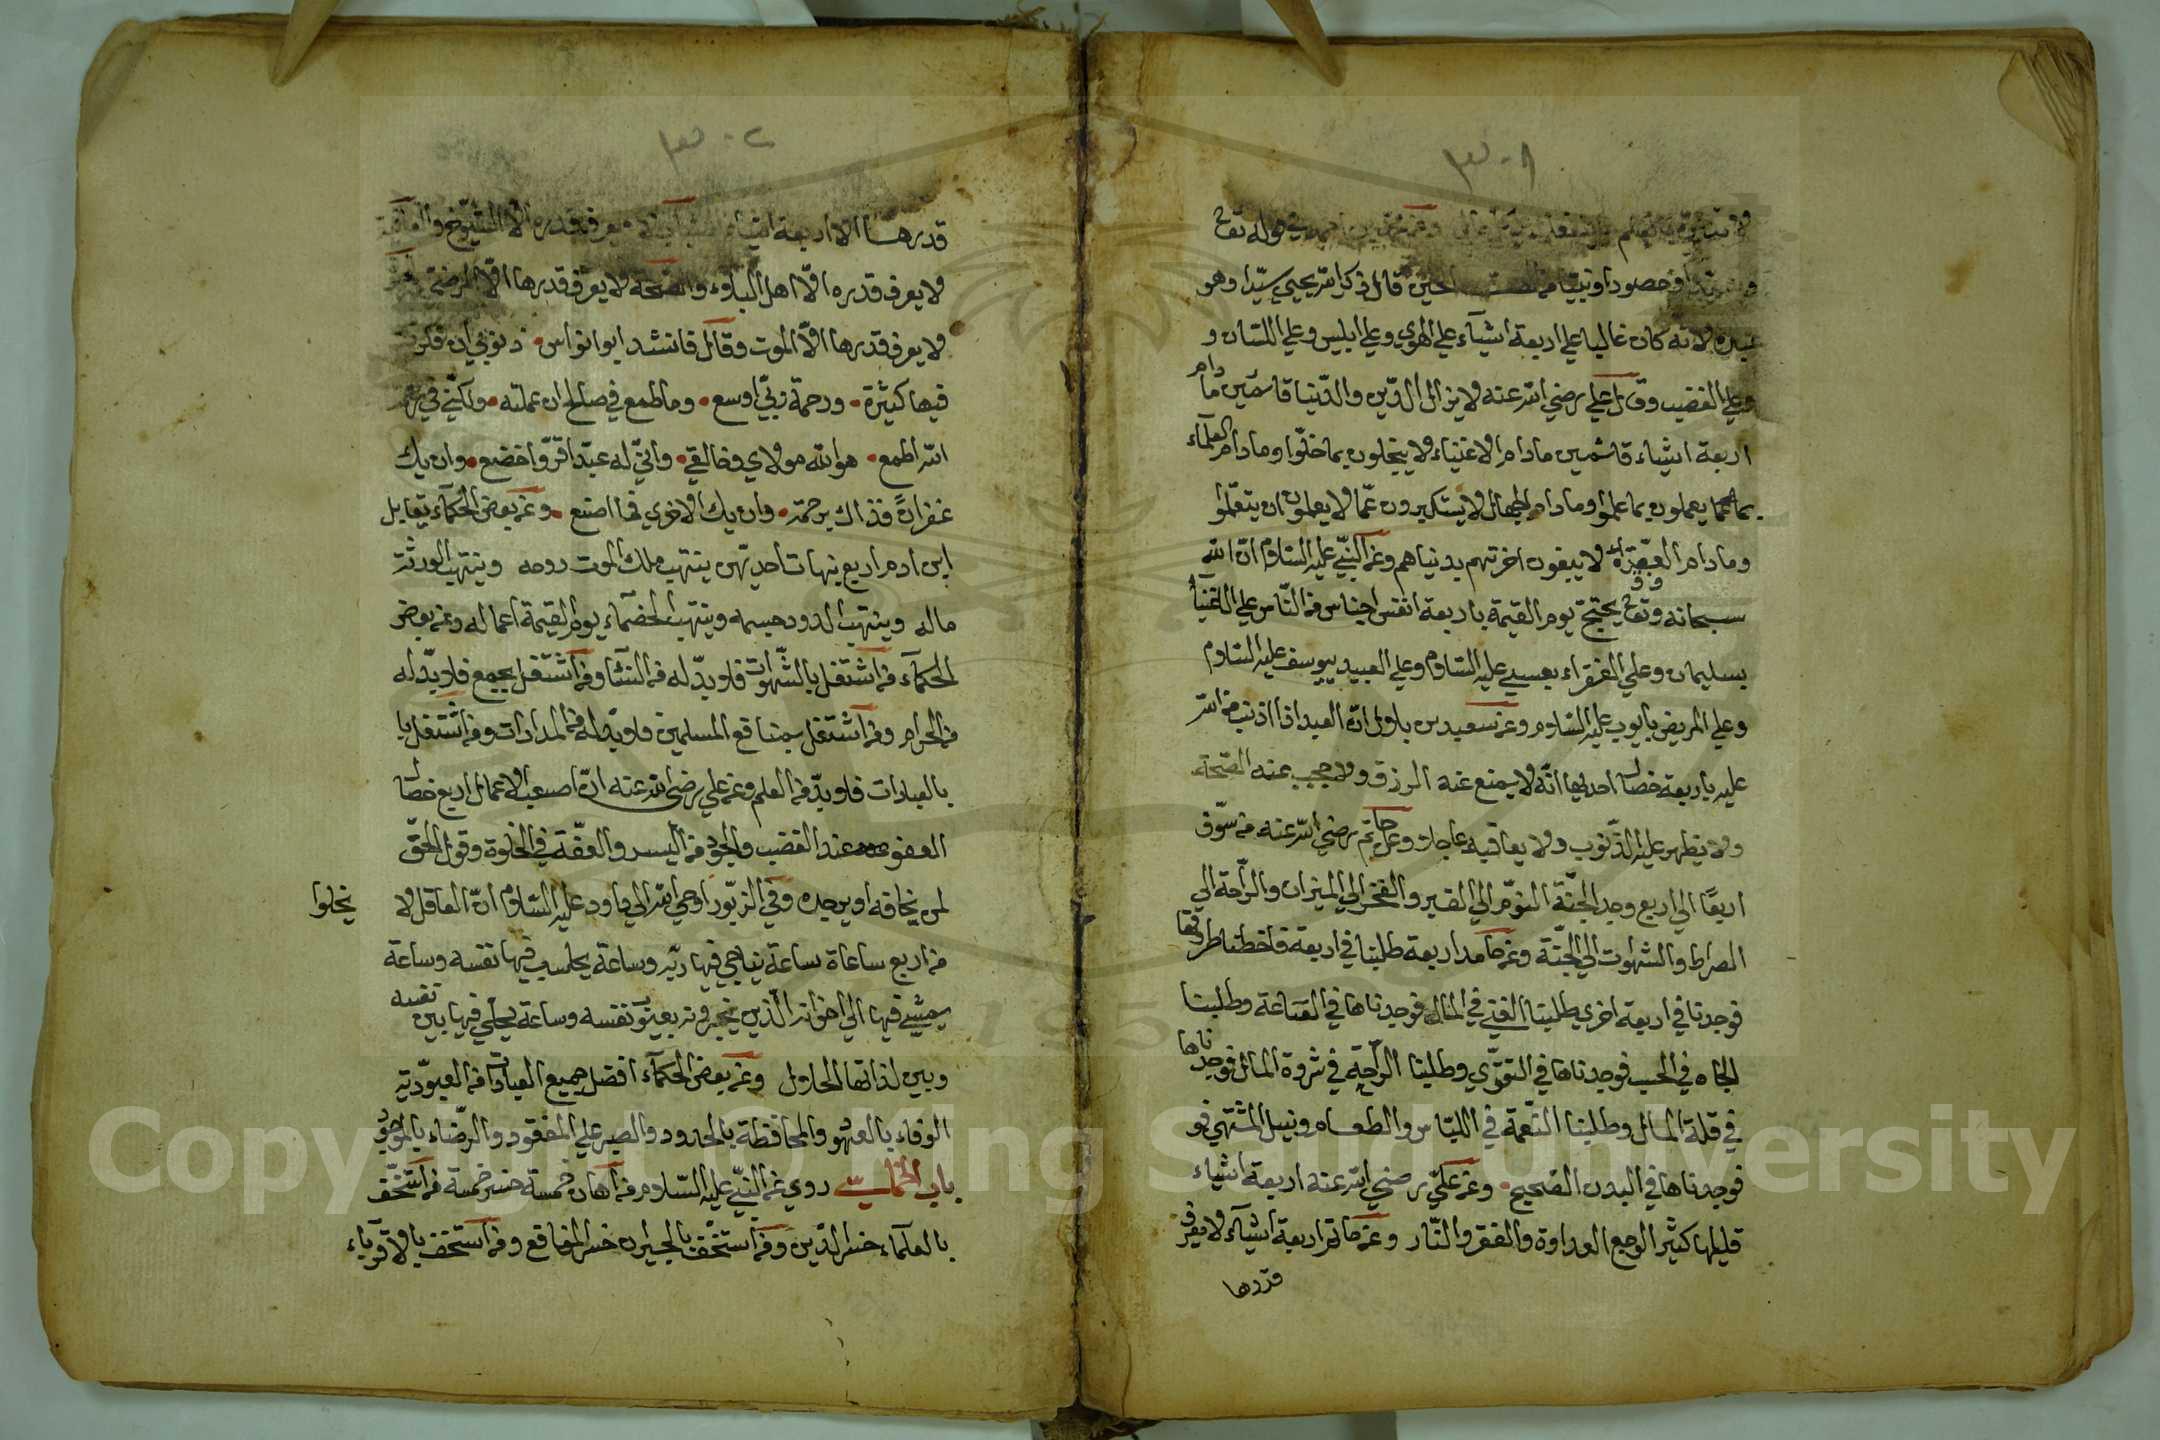 قوله تعالى
وسيدا وحصورا ونبيا من الصالحين قال ذكر الله يحيي سيّدا وهو
عبده لانه كان غالبا علي اربعة اشيآء علي الهوي وعلي ابليس وعلي اللسان و
وعلي الغضب وقال علي رضي الله عنه لا يزال الدّين والدّنيا قائمين ما دام
اربعة اشياء قائمين مادام الاغنياء لا يبخلون بما خوّلوا ومادام العلمآء
يعملون بما علموا ومادام الجهال لا يستكبرون عمّا لا يعلمون ان يتعلّموا
ومادام الفقرآء لا يبيعون اخرتهم بدنياهم وعن النّبيّ عليه السّلام انّ الله
سبحانه وتعالى يحتجّ يوم القيمة باربعة انفس اجناس من النّاس علي الاغنيآء
بسليمان وعلي الفقراء بعيسي عليه السّلام وعلي العبيد بيوسف عليه السّلام
وعلي المريض بايوب عليه السّلام وعن سعيد بن بلال انّ العبد اذا اذنب من الله
عليه باربعة خصال احديها انّه لا يمنع عنه الرزق ولا يحجب عنه الصّحة
ولا يظهر عليه الذّنوب ولا يعاقبه عاجلا وعن حاتم رضي الله عنه من سوّف
اربعًا الي اربع وجد الجنّة النوم الي القبر والفخر الي الميزان والرّاحة الي
الصراط والشهوات الي الجنّة وعن حامد اربعة طلبنا في اربعة فاخطئنا طرقها
فوجدنا في اربعة اخري طلبنا الغني في المال فوجدناها في القناعة وطلبنا
الجاه في الحسب فوجدناها في التقوي وطلبنا الرّاحة في ثروة المال فوجدناها
في قلة المال وطلبنا النّعمة في اللّباس والطعام ونيل المشتهي فو
فوجدناها في البدن الصّحيح وعن عليّ رضي الله عنه اربعة اشياء
قليلها كثير الوجع العداوة والفقر والنّار وعن حاتم اربعة اشيآء لا يعرف
قدرها
قدرها الا اربعة اشياء الشباب لا يعرف قدره الّا الشّيوخ والعافية
ولا يعرف قدره الّا اهل البلاء والصّحة لا يعرف قدرها الّا المرضي
ولا يعرف قدرها الّا الموت وقال فانشد ابو انواس ذنوبي ان فكرت
فيها كثيرة ورحمة ربّي اوسع وما طمع في صالح ان عملته ولكنّني في رحمة
الله اطمع هو الله مولاي وخالقي وانّي له عبد اقرّ واخضع وان يك
غفرانً فذاك برحمة وان يك الاخري فما اصنع وعن بعض الحكمآء يقابل
ابن ادم اربع نهبات احديهن ينتهب ملك الموت روحه وينتهب الورثة
ماله وينتهب الدود جسمه وينتهب الخصمآء يوم القيمة اعماله وعن بعض
الحكمآء من اشتغل بالشّهوات فلا بدّ له من النسا ومن اشتغل بجمع فلا بدّ له
من الحرام ومن اشتغل بمنافع المسلمين فلا بدّ له من المدارات ومن اشتغل با
بالعبادات فلا بدّ من العلم وعن علي رضي الله عنه انّ اصعب الاعمال اربع خصال
العفو عند الغضب والجود من اليسر والعفّة في الخلوة وقول الحقّ
لمن يخافه او يرجوه وفي الزّبور اوحي الله الي داود عليه السّلام انّ العاقل لا يخلوا
من اربع ساعاة ساعة يناجي فيها ربّه وساعة يحاسب فيها نفسه وساعة
يمشي فيها الي اخوانه الّذين يخبرونه بعيوب نفسه وساعة يخلي فيها بين نفسه
وبين لذاتها الحلال وعن بعض الحكمآء افضل جميع العبادات من العبوّدية
الوفاء بالعهود والمحافظة بالحدود والصبر علي المفقود والرّضاء بالموجود
باب الخماسي روي عن النّبيّ عليه السّلام من اهان خمسة خسر خمسة من استخفّ
بالعلمآء خسر الدّين ومن استخفّ بالجيران خسر المنافع ومن استخف بالاقربآء